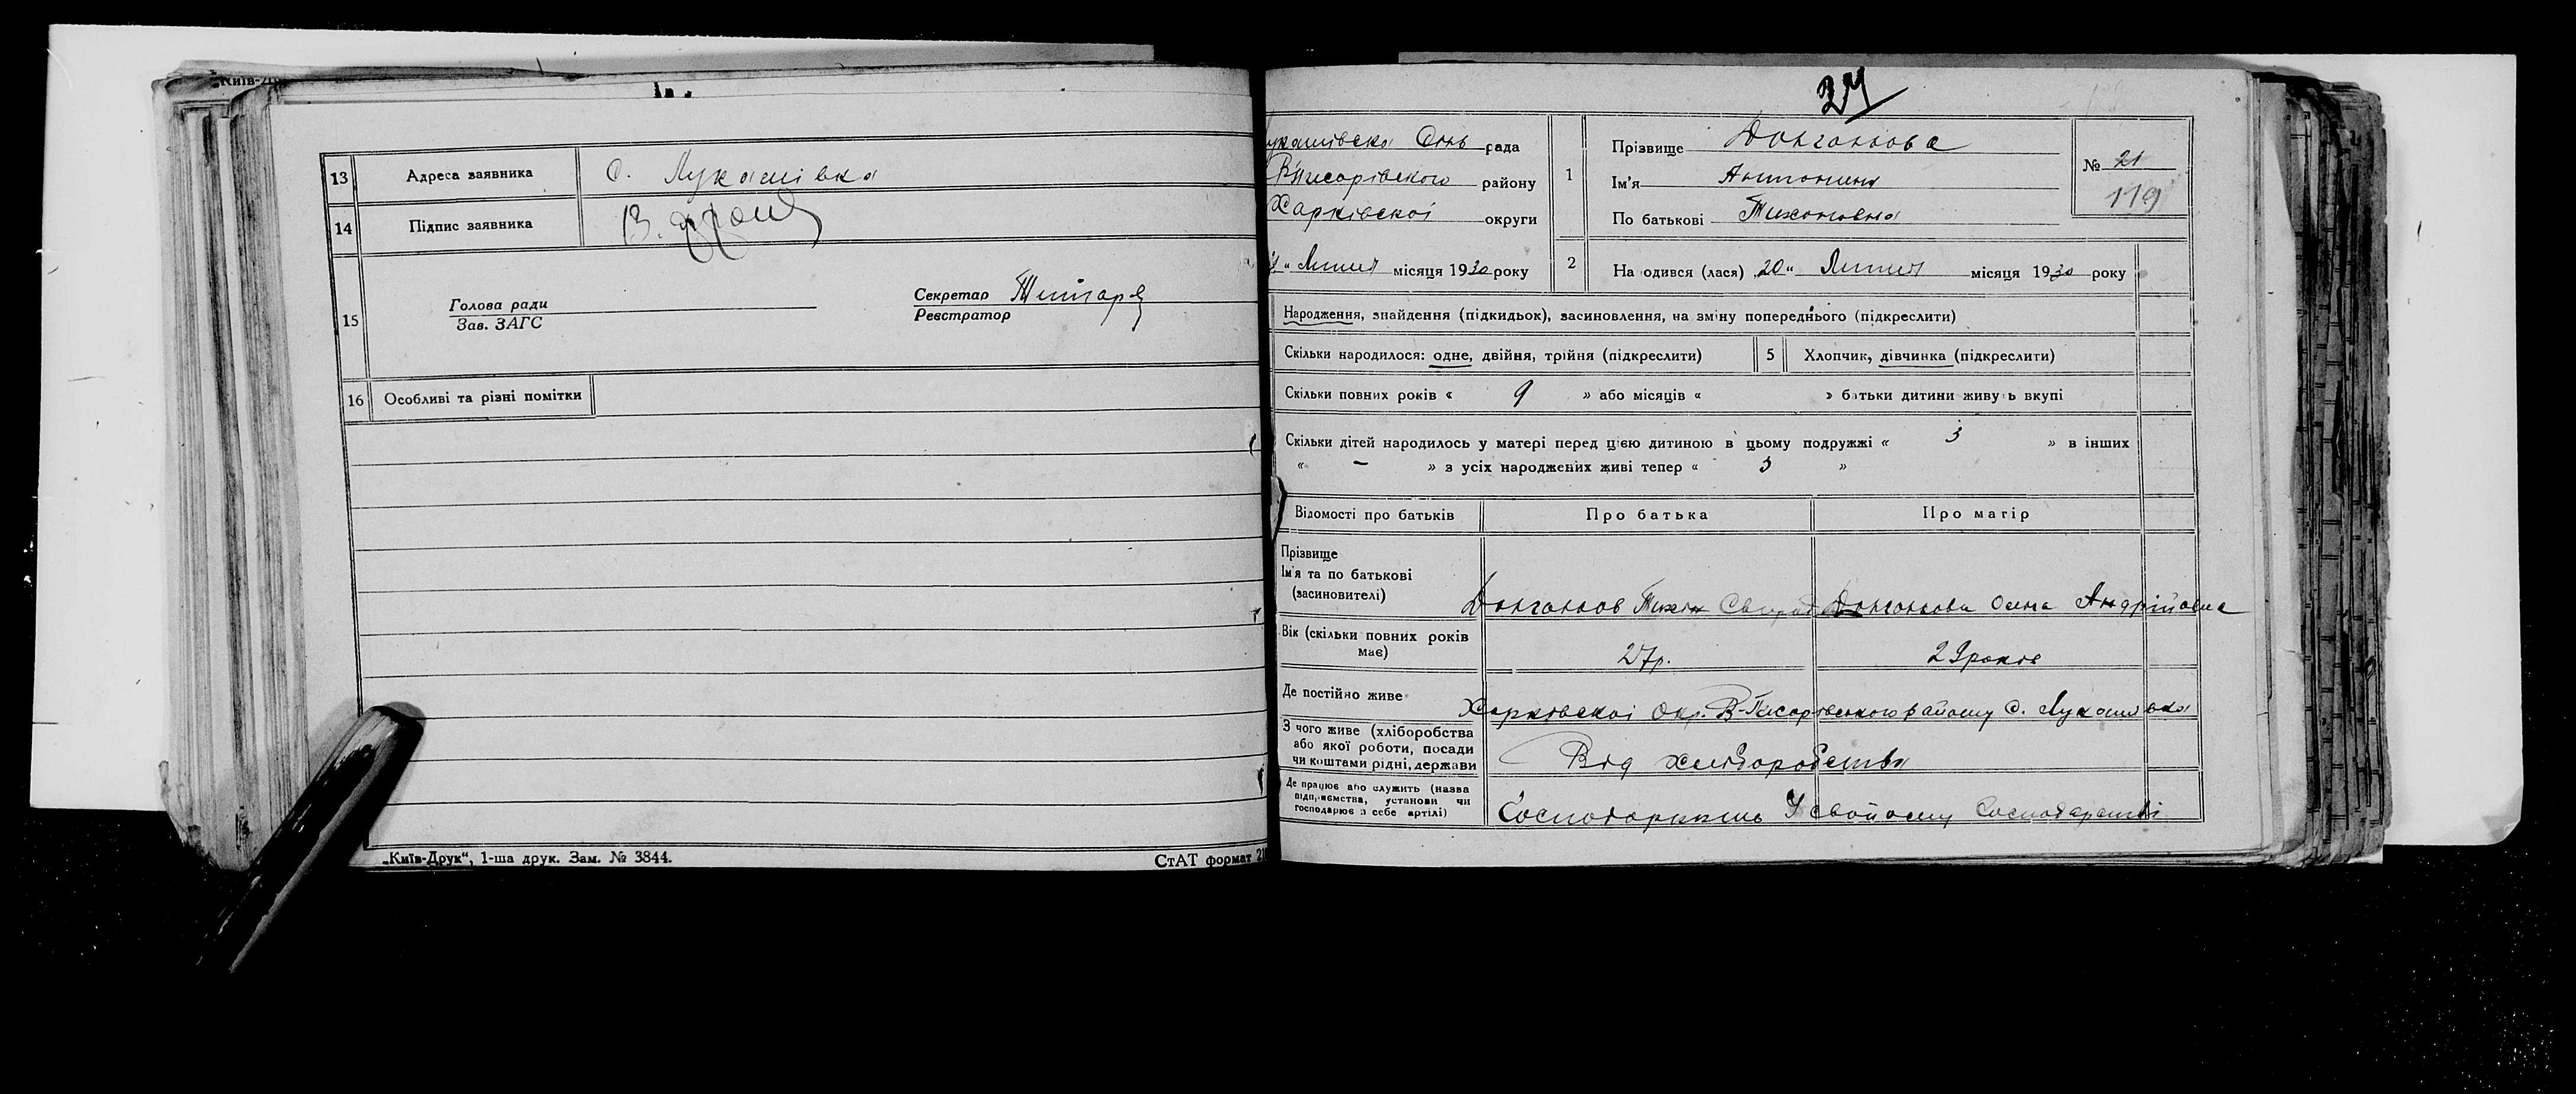 „Київ-Др
13 Адреса заявника с. Лукашівка
14 Підпис заявника
15 Голова ради
Зав. ЗАГС
Секретар Титаре
Реєстратор
16 Особливі та різні помітки
„Київ-Друк“, 1-ша друк. Зам. № 3844.
СтАТ формат 21
27
Лукашівська Сіль рада
В Писарівського району
Харківскоі округи
Липня місяця 1930 року
1 Прізвище Долгальова
Ім'я Антонина
По батькові Тихоновна
№ 21
119
2 На одився (лася) 20" Липня місяця 1930 року
Народження, знайдення (підкидьок), засиновлення, на зміну попереднього (підкреслити)
Скільки народилося: одне, двійня, трійня (підкреслити) 5 Хлопчик, дівчинка (підкреслити)
Скільки повних років « 9 » або місяців « » батьки дитини живу ь вкупі
Скільки дітей народилось у матері перед цією дитиною в цьому подружжі « 3 » в інших
« – » з усіх народжених живі тепер « 3 »
Відомості про батьків Про батька Про матір
Прізвище
Ім'я та по батькові
(засиновителі)
Долгальов Тихін Долгальова Олена Андрійовна
Вік (скільки повних років
має)
27р. 29 років
Де постійно живе Харківскоі Окр. В-Писарівського району с. Лукашівка
З чого живе (хліборобства
або якої роботи, посади
чи коштами рідні, держави
Від хліборобства
Де працює або служить (назва
підприємства, установи чи
господарює в себе артілі)
Господарюють У свойому Господарстві